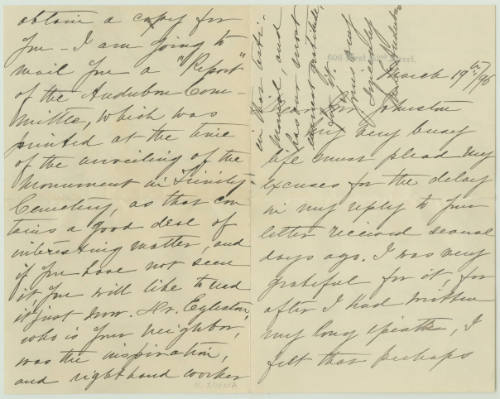 obtain a copy for
you – I am going to
mail you a "Report"
of the Audubon Com-
mittee, which was
printed at the time
of the unveiling of the
Monument in Trinity
Cemetery, as that con
tains a good deal of
interesting matter, and
if you have not seen
it, you will like to read
it just now. Mr. Egleston,
who is your neighbor,
was the inspiration,
and right hand worker
March 19th/96
Johnston
My very busy
life must plead my
excuses for the delay
in my reply to your
letter received several
days ago. I was very
grateful for it, for
after I had written
my long epistle, I
felt that perhaps
and
most